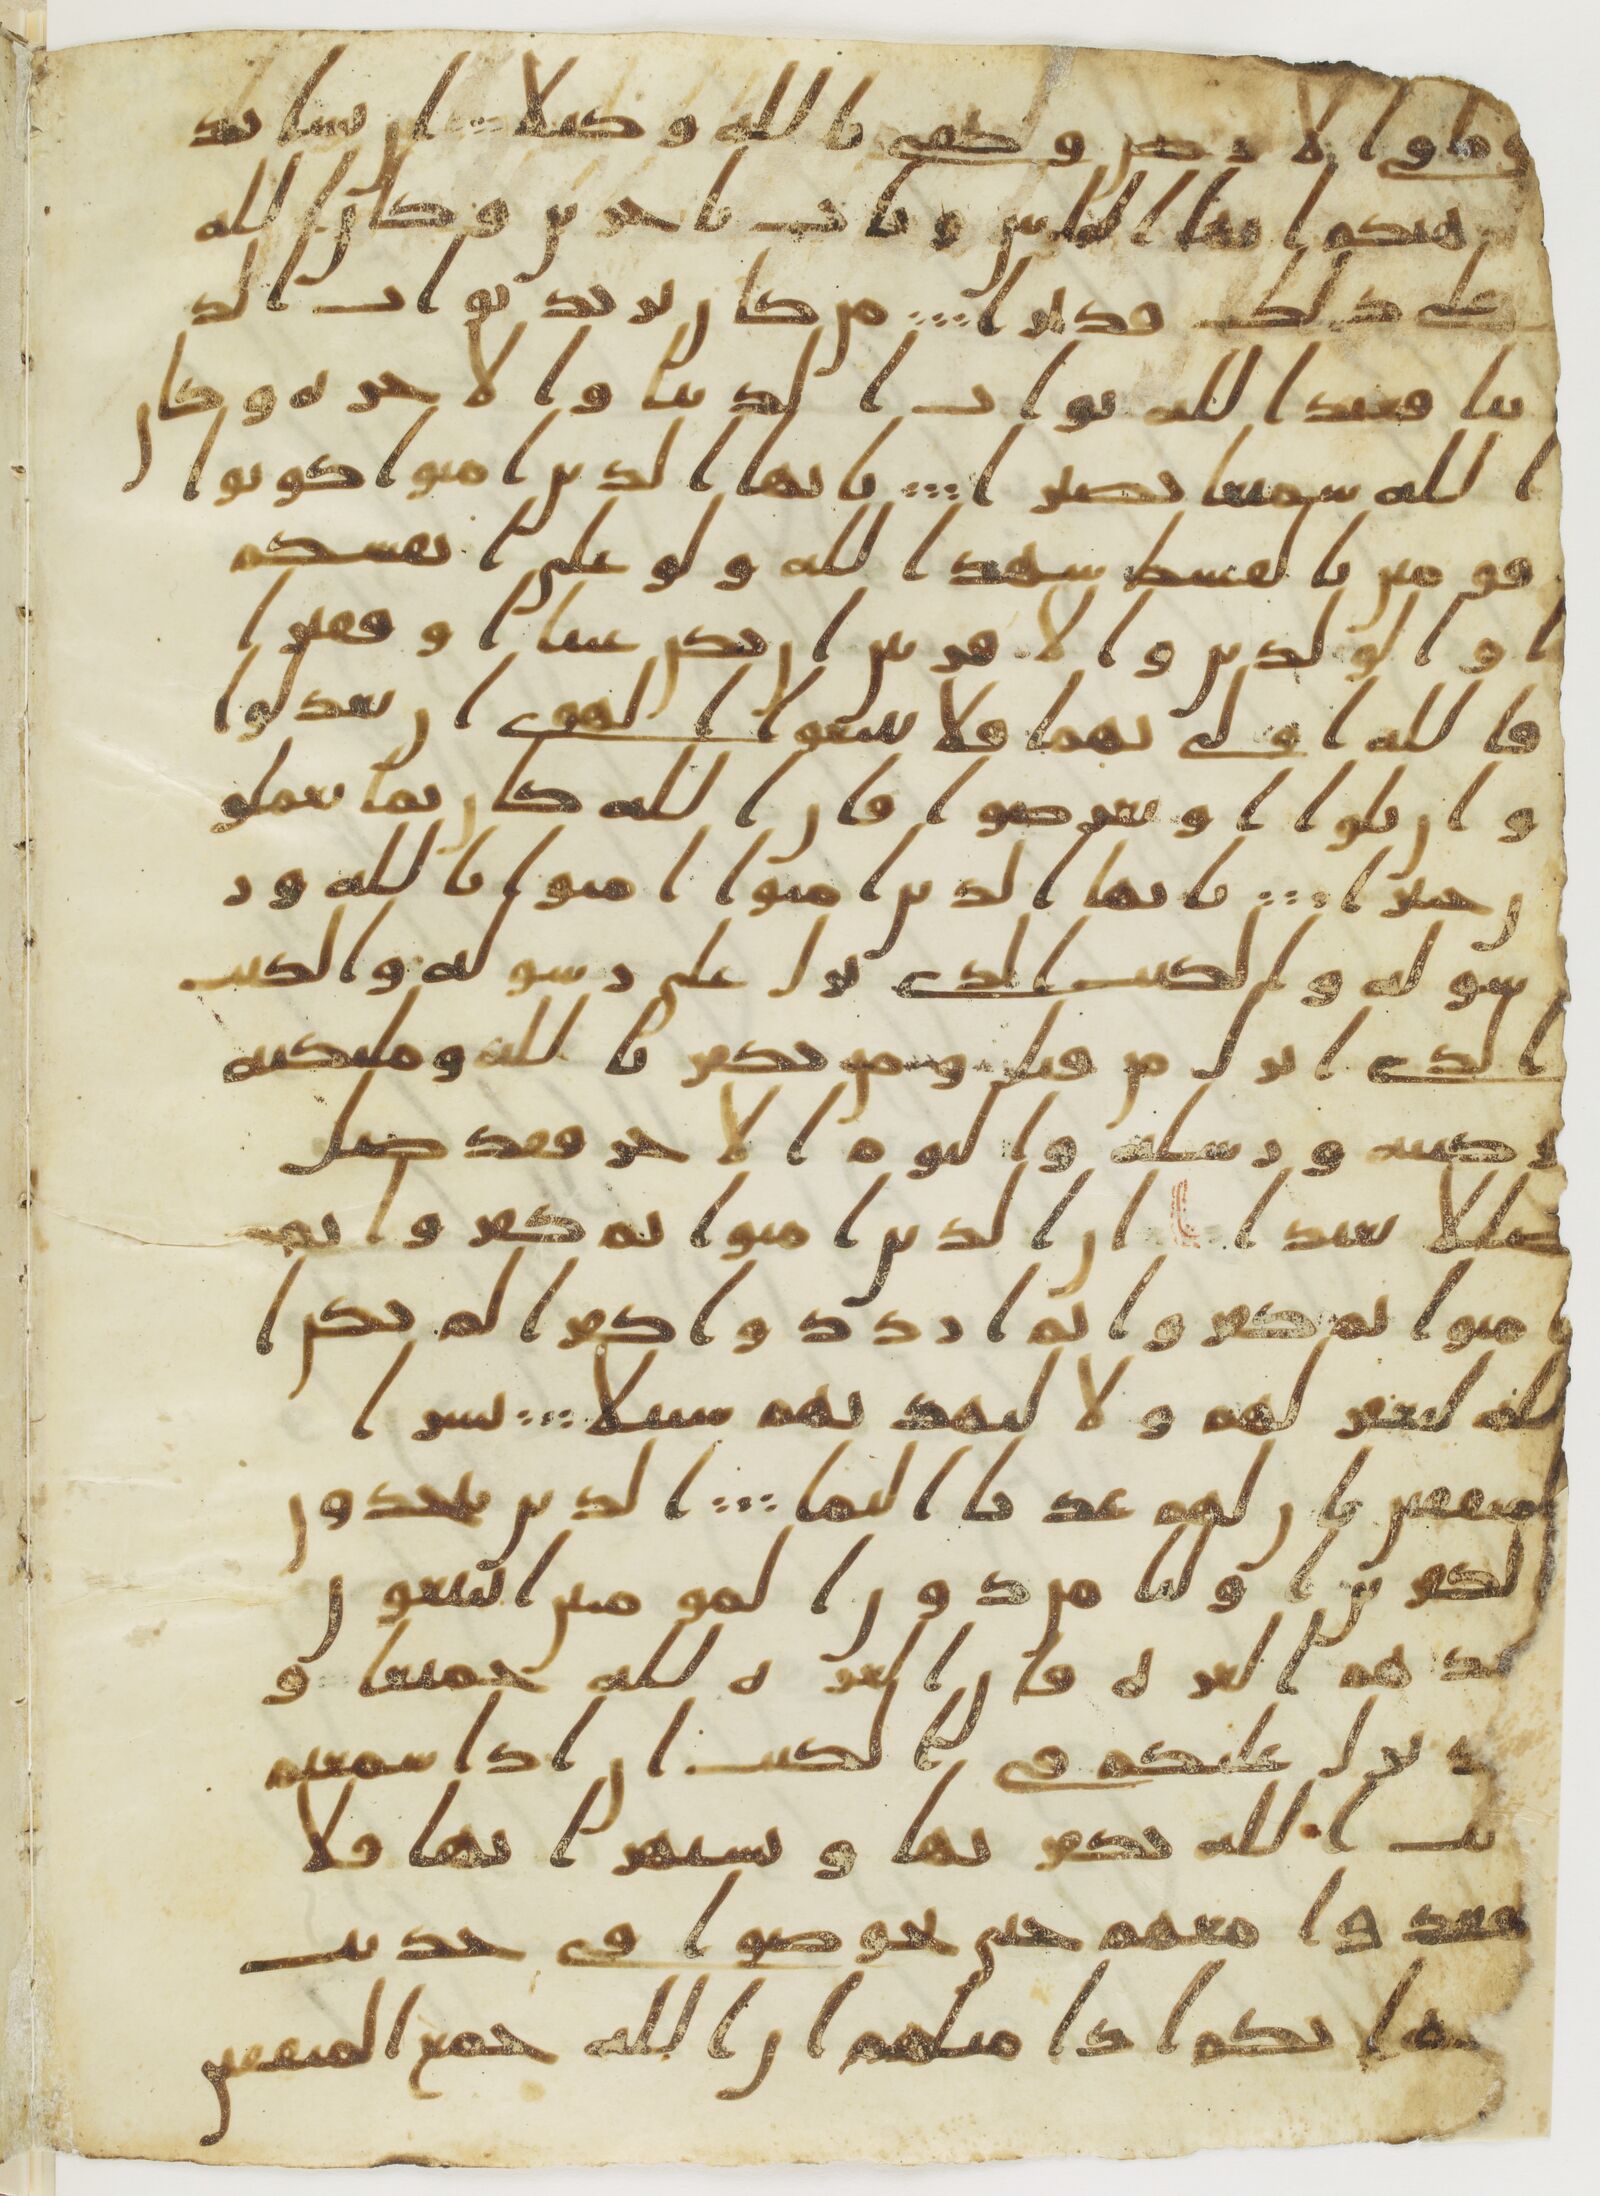 وما في الارض وكفى بالله وكيلا ان يشا يذ
هبكم ايها الناس ويات باخرين وكان الله
على ذلك قديرا من كان يريد ثواب الد
نيا فعند الله ثواب الدنيا والاخرة وكان
الله سميعا بصيرا يايها الذين امنوا كونوا
قومين بالقسط شهدا لله ولو على انفسكم
او الولدين والاقربين ان يكن غنيا او فقيرا
فالله اولى بهما فلا تتبعوا الهوى ان تعدلوا
وان تلوا او تعرضوا فان الله كان بما تعملو
ن خبيرا يايها الذين امنوا امنوا بالله ور
سوله والكتب الذي نزل على رسوله والكتب
الذي انزل من قبل ومن يكفر بالله وملئكته
وكتبه ورسله واليوم الاخر فقد ضل
ضللا بعيدا ان الذين امنوا ثم كفروا ثم
امنوا ثم كفروا ثم ازددوا كفرا لم يكن ا
لله ليغفر لهم ولا ليهديهم سبيلا بشر ا
لمنفقين بان لهم عذابا اليما الذين يتخذون
الكفرين اوليا من دون المومنين ايبتغون
عندهم العزة فان العزة لله جميعا و
قد نزل عليكم في الكتب ان اذا سمعتم
ايت الله يكفر بها ويستهزا بها فلا
تقعدوا معهم حتى يخوضوا في حديث
غيره انكم اذا مثلهم ان الله جمع المنفقين